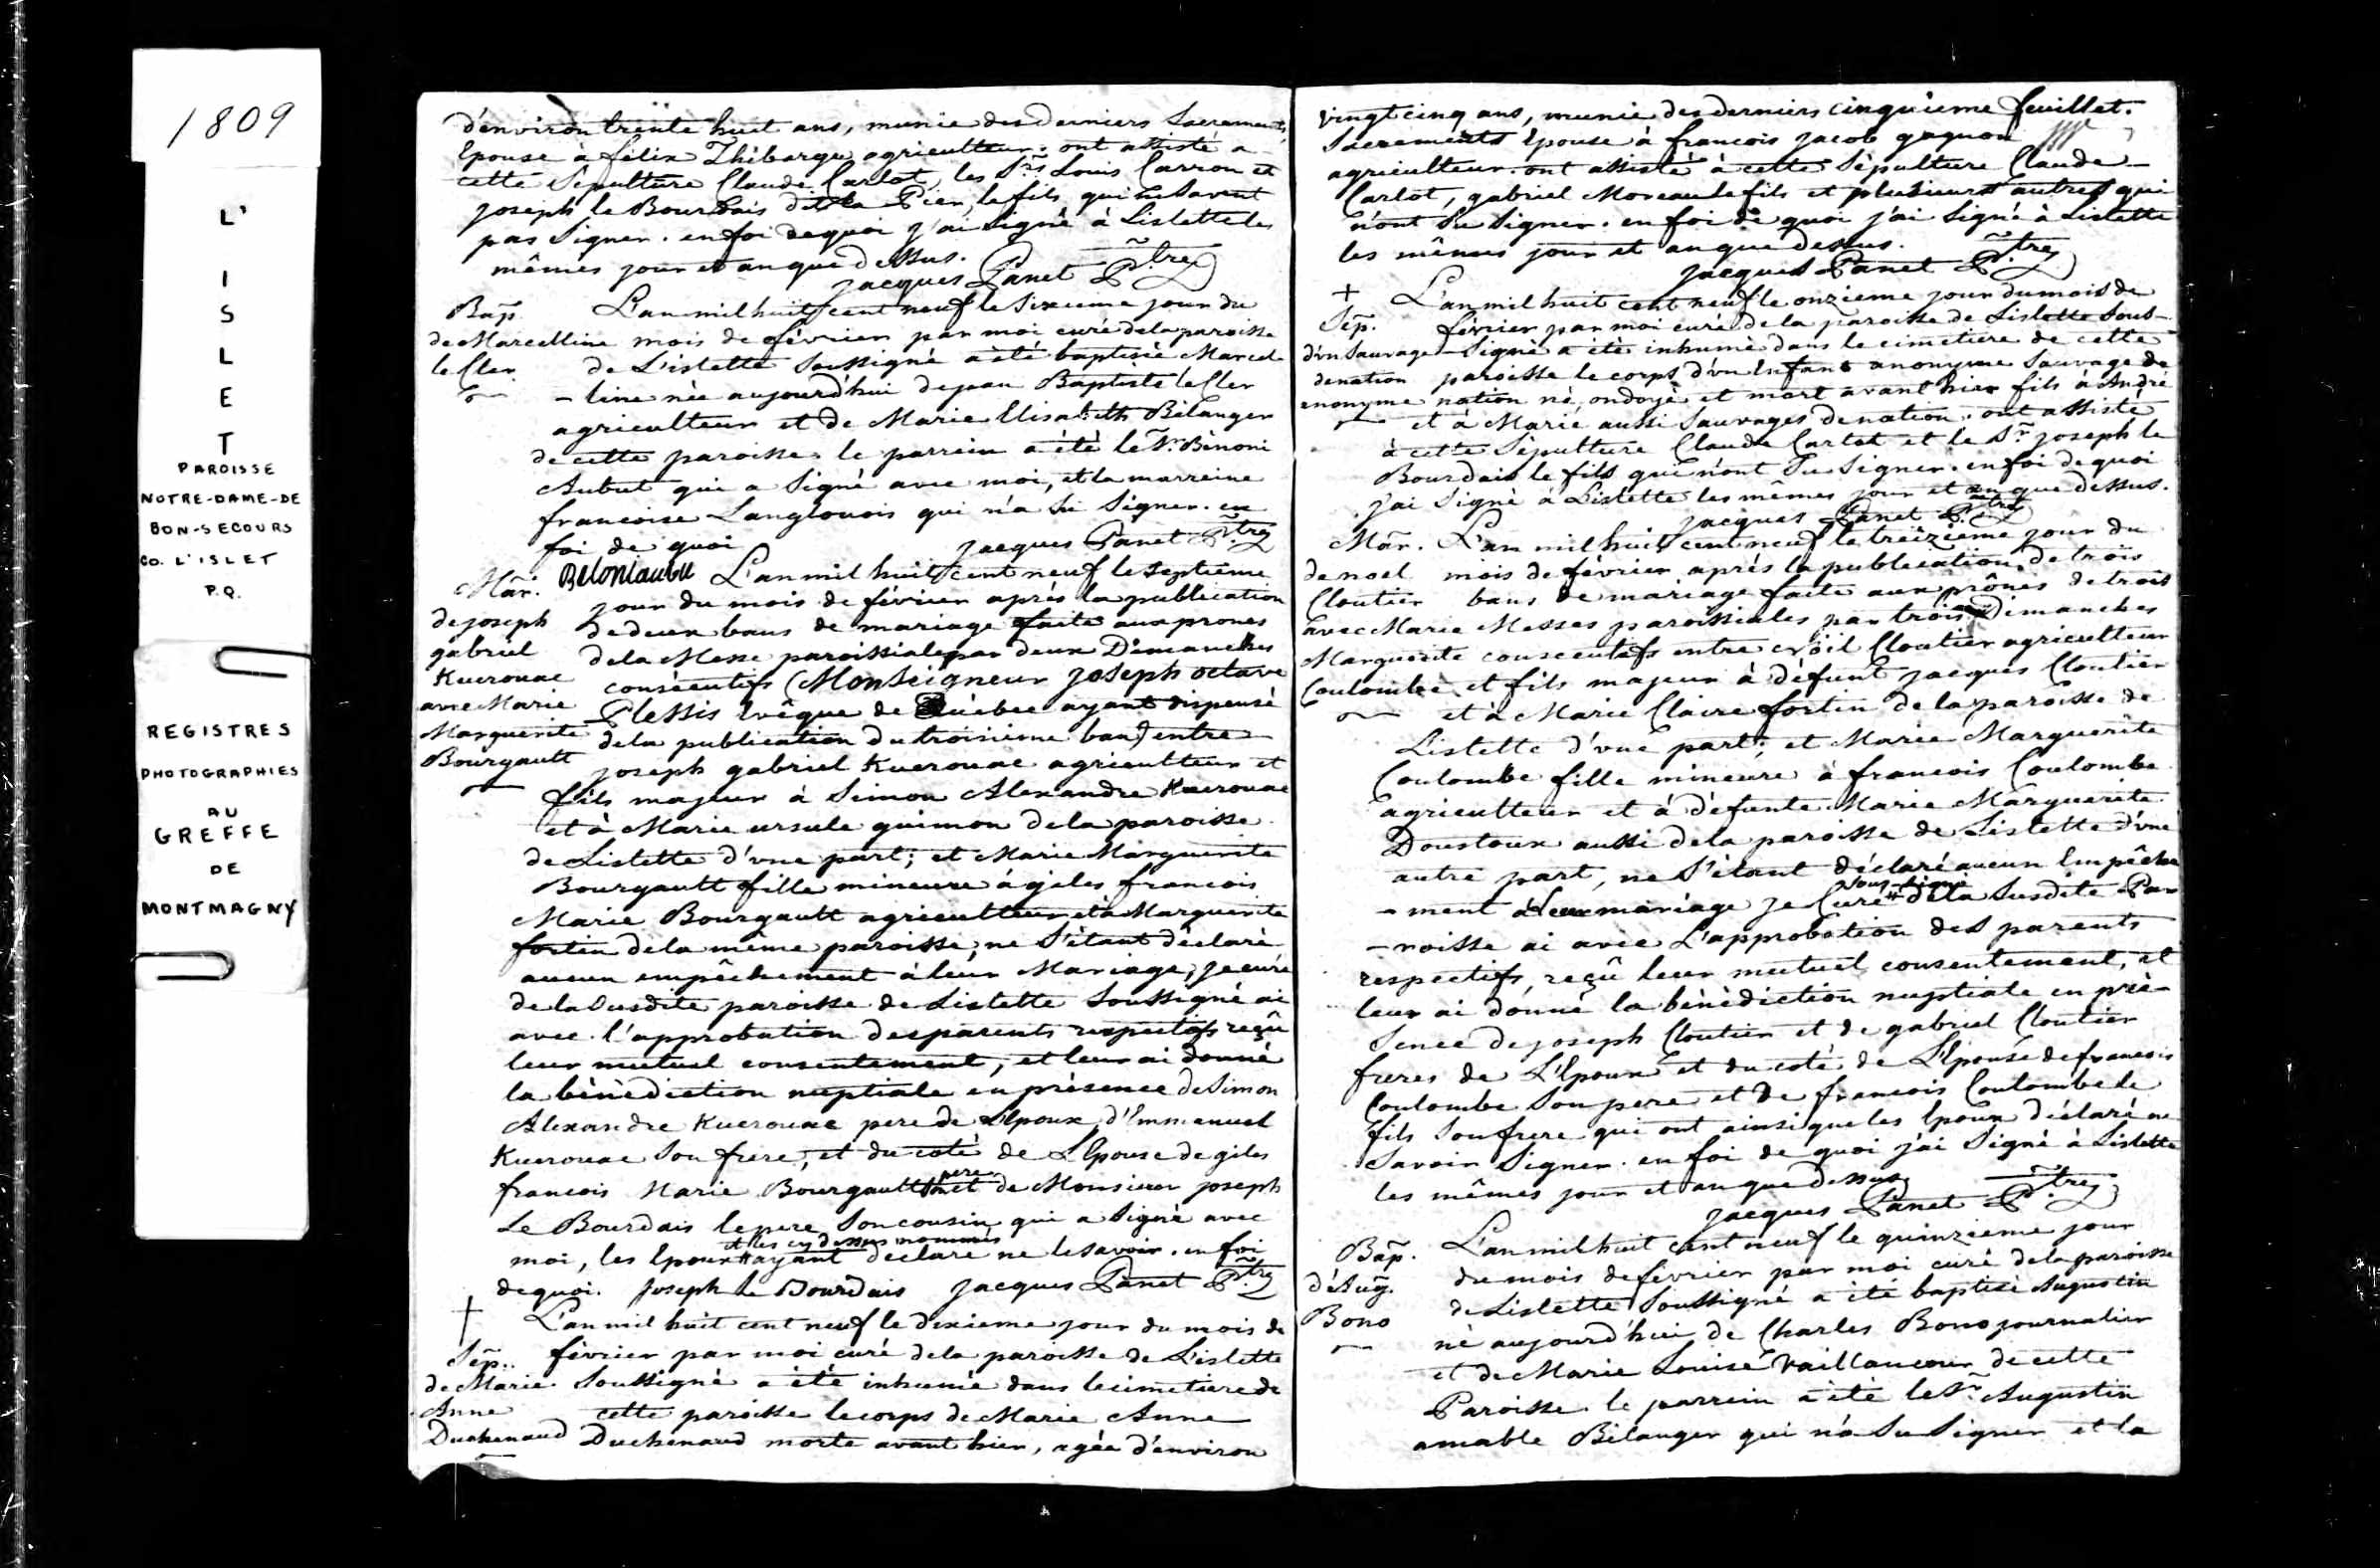 1809
L'
I
S
L
E
T
PAROISSE
NOTRE-DAME-DE
BON-SECOURS
CO. L'ISLET
P.Q.
REGISTRES
PHOTOGRAPHIES
AU
GREFFE
DE
MONTMAGNY
d'environ trente huit ans, munie des derniers Sacrements
Epouse à félix Thibarge agriculteur. ont assisté a
cette Sepulture Claude Carlot, les Srs Louis Carron et
joseph le Bourdais dit la Pier, le fils qui ne Savent
pas Signer. en foi de quoi j'ai Signé à Lislette les
mêmes jour et an que dessus.
jacques Panet Ptre
Bap. L'an mil huit cent neuf le Sixieme jour du
de Marcelline mois de février par moi curé de la paroisse
le Cler de L'islette Soussigné a été baptisée Marcel-
- line née aujourd'hui de jean Baptiste le Cler
agriculteur et de Marie Elisabeth Bélanger
de cette paroisse. le parrein a été le Sr. Bènoni
Aubut qui a Signé avec moi, et la marreine
francoise Langlouois qui n'a Su Signer. en
foi de quoi jacques Panet Ptre
Mar. Beloniaubu L'an mil huit cent neuf le septieme
jour du mois de février après la publication
de joseph de deux bans de mariage faite aux prones
gabriel de la Messe paroissiale par deux Dimanches
Kuerouac consécutifs (Monseigneur joseph octave
avec Marie Plessis Evêque de Québec ayant dispensé
Marguerite de la publication du troisieme ban) entre
Bourgault joseph gabriel Kuerouac agriculteur et
fils majeur à Simon Alexandre Kuerouac
et à Marie ursule guimon de la paroisse
de Lislette d'une part; et Marie Marguerite
Bourgault fille mineure à gilles francois
Marie Bourgault agriculteur et à Marguerite
fortin de la même paroisse, ne S'étant déclaré
aucun empêchement à leur Mariage, je curé
de la Susdite paroisse de Lislette Soussigné ai
avec l'approbation des parents respectifs reçû
leur mutuel consentement, et leur ai donné
la bénédiction nuptiale en présence de Simon
Alexandre Kuerouac pere de L'Epoux, d'Emmanuel
Kuerouac Son frere, et du coté de L'Epouse de giles
pere
francois Marie Bourgault Son et de Monsieur joseph
Le Bourdais le pere Son cousin qui a Signé avec
et les cy dessus nommés
moi, les Epoux ayant declaré ne le savoir. en foi
de quoi. Joseph le Bourdais jacques Panet Ptre
+ L'an mil huit cent neuf le dixieme jour du mois de
Sep. février par moi curé de la paroisse de L'islette
de Marie Soussigné a été inhumée dans le cimetiere de
Anne cette paroisse le corps de Marie Anne
Duchenaud Duchenaud morte avant hier, agée d'environ
vingt cinq ans, munie des derniers cinquieme feuillet.
Sacrements Epouse à francois jacob gagnon
agriculteur. ont assisté à cette Sépulture Claude
Carlot, gabriel Moreau le fils et plusieurs autres qui
n'ont Su Signer. en foi de quoi j'ai Signé à Lislette
les mêmes jour et an que dessus.
jacques Panet Ptre
+ L'an mil huit cent neuf le onzieme jour du mois de
Sep. février par moi curé de la paroisse de Lislette Sous-
d'un Sauvage -Signé a été inhumé dans le cimetiere de cette
de nation paroisse le corps d'un Enfant anonyme Sauvage de
anonyme nation né, ondoyé et mort avant hier fils à André
et à Marie aussi Sauvages de nation. ont assisté
à cette Sépulture Claude Carlot et le Sr. joseph le
Bourdais le fils qui n'ont Su Signer. en foi de quoi
j'ai Signé à Lislette les mêmes jour et an que dessus.
jacques Panet Ptre
Mar. L'an mil huit cent neuf le treizieme jour du
de noel mois de février après la publication de trois
Cloutier bans de mariage faite aux prônes de trois
avec Marie Messes paroissiales par trois Dimanches
Marguerite consecutifs entre noel Cloutier agriculteur
Coulombe et fils majeur à défunt jacques Cloutier
et à Marie Claire fortin de la paroisse de
Lislette d'une part; et Marie Marguerite
Coulombe fille mineure à francois Coulombe
agriculteur et à défunte Marie Marguerite
Doustoux aussi de la paroisse de Lislette d'une
autre part, ne S'étant déclaré aucun Empêche
Sous-signé
- ment à leur mariage je Curé de la Susdite Pa-
- roisse ai avec L'approbation des parents
respectifs, reçû leur mutuel consentement, et
leur ai donné la bénédiction nuptiale en pré-
Sence de joseph Cloutier et de gabriel Cloutier
freres de L'Epoux et du coté de L'Epouse de francois
Coulombe Son pere et de francois Coulombe le
fils Son frere qui ont ainsi que les Epoux déclaré ne
Savoir Signer. en foi de quoi j'ai Signé à Lislette
les mêmes jour et an que dessus
jacques Panet Ptre
Bap. L'an mil huit cent neuf le quinzieme jour
d'Aug. du mois de février par moi curé de la paroisse
de Lislette Soussigné a été baptisé Augustin
Bono né aujourd'hui de Charles Bono journalier
et de Marie Louise Vaillancour de cette
Paroisse. le parrein a été le Sr. Augustin
amable Bélanger qui n'a Su Signer et la